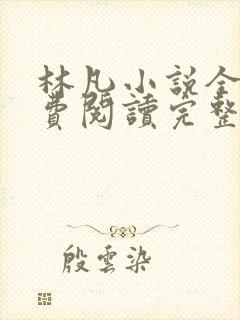 林凡小説全
費閱讀完整
殷雲染